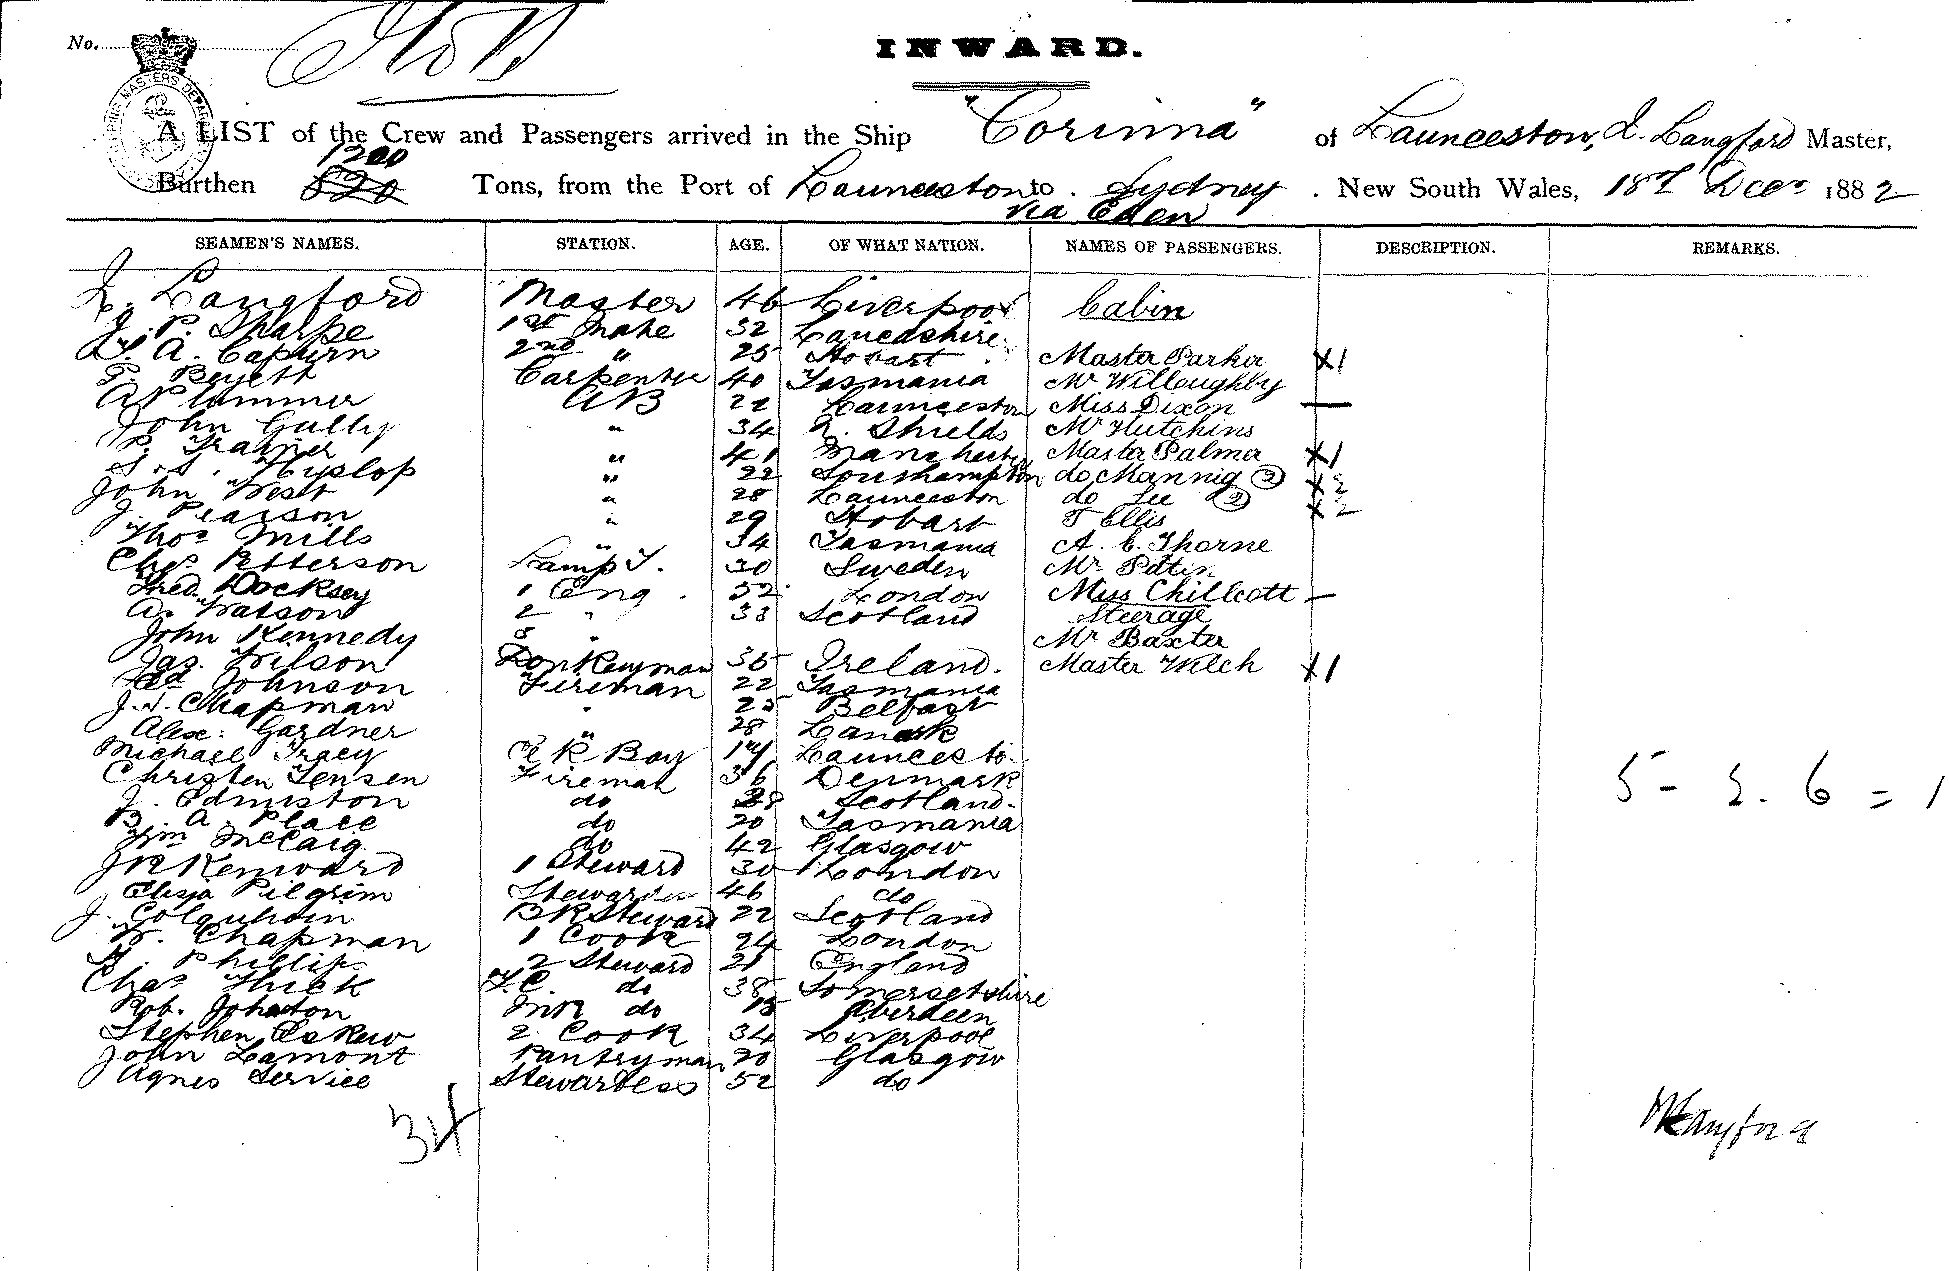 No.
INWARD.
A LIST of the Crew and Passengers arrived in the Ship "Corinna" of Launceston, Langford Master,
1200
Burthen 520 Tons, from the Port of Launceston to Sydney. New South Wales, 18th Decr 1882
via Eden
SEAMEN'S NAMES. STATION. AGE. OF WHAT NATION. NAMES OF PASSENGERS. DESCRIPTION. REMARKS.
Langford Master 46 Liverpool Cabin
J. P. Sharpe 1st Mate 32 Lancashire
A. Capurn 2nd " 25 Hobart Master Parker X1
Carpenter 40 Tasmania Mr Willoughby
A Plummer AB 22 Launceston Miss Dixon —
John Gully " 34 N. Shields Mr Hutchins
P. Trainer " 41 Manchester Master Palmer X1
Hyslop " 22 Southampton do Mannig 2 X2
John West " 28 Launceston do Lee 2 X2
J. Pearson " 29 Hobart T Ellis
Thos Mills " 34 Tasmania A. C. Thorne
Chs Petterson Lamp T. 30 Sweden Mr
Fred Docksey 1 Eng. 52 London Miss Chillcott —
A. Watson 2 " 33 Scotland Steerage
John Kennedy 3 " Mr Baxter
Jas. Wilson Donkeyman 35 Ireland. Master Welch X1
Ed Johnson Fireman 22 Tasmania
J. S. Chapman " 25 Belfast
Alex. Gardner " 28 Lanark
Michael Tracy Boy Launcesto
Christen Jensen Fireman 36 Denmark
J. Edmiston do 28 Scotland.
B. A. Place do 20 Tasmania
Wm McCaig do 42 Glasgow
5 - 6 = 1
J R Kenward 1 Steward 30 London
Eliza Pilgrim 46 do
J. Colquhoun BK Steward 22 Scotland
W. Chapman 1 Cook 24 London
H. Phillips 2 Steward 21 England
Chas Thick do 38 Somersetshire
Rob. Johnston do 18 Aberdeen
Stephen Eskew 2 Cook 34 Liverpool
John Lamont Pantryman 20 Glasgow
Agnes Service Stewardess 52 do
34
Langford